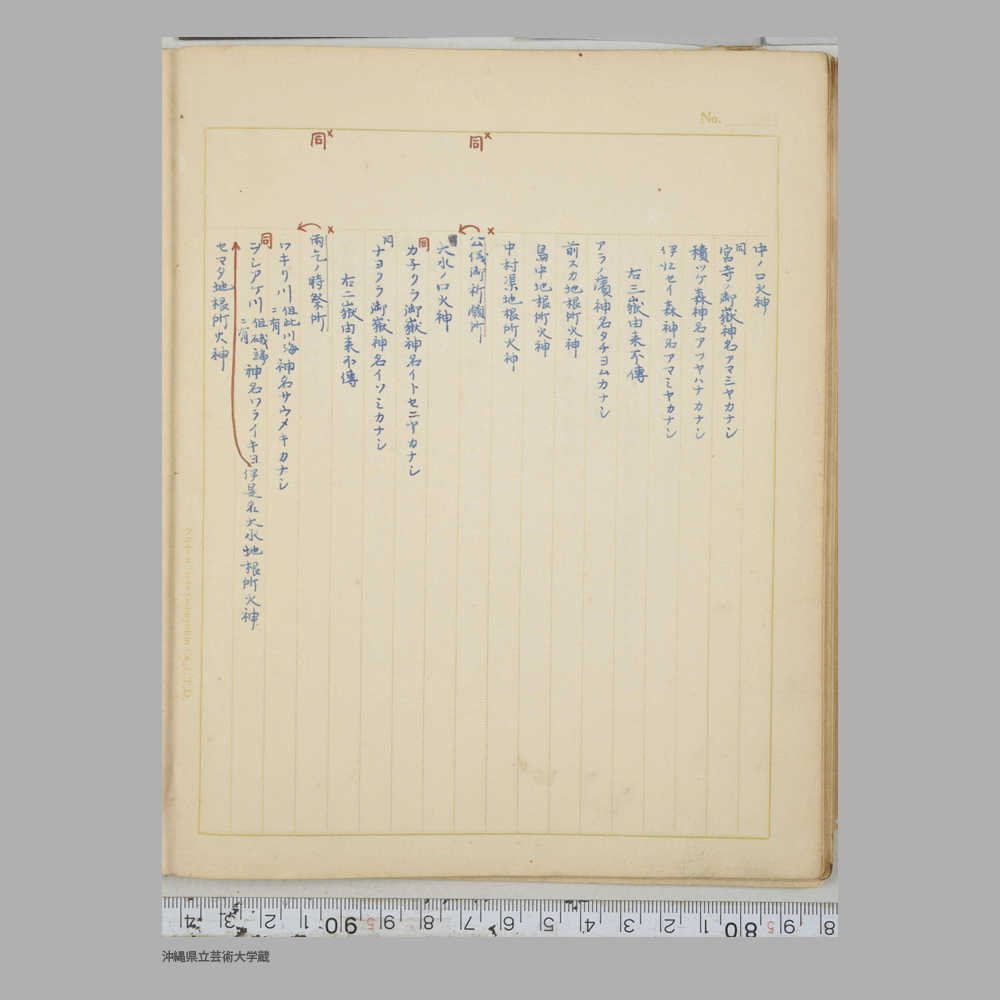 No.
中ノ口火神
同
宮寺ノ御嶽神名アマミヤカナシ
積ツケ森神名アフヤハナカナシ
伊セイ森神名アマミヤカナシ
右三嶽由来不傳
アラノ濱神名タチヨムカナシ
前スカ地根所火神
島中地根所火神
中村渠地根所火神
同×
×
公儀御祈願所
大水ノ口火神
同
カネクラ御嶽神名イトセニヤカナシ
同
ナヨクラ御嶽神名イソミカナシ
右二嶽由来不傳
同×
×
雨乞ノ時祭所
ワキリ川 但比川海ニ有 神名サウメキカナシ
同
シアケ川 但礒端ニ有 神名ワライキヨ
伊是名大水地根所火神
セマタ地根所火神
Co., L.T.D.
4 3 2 1 90 9 8 7 6 5 4 3 2 1 80 9 8
沖縄県立芸術大学蔵